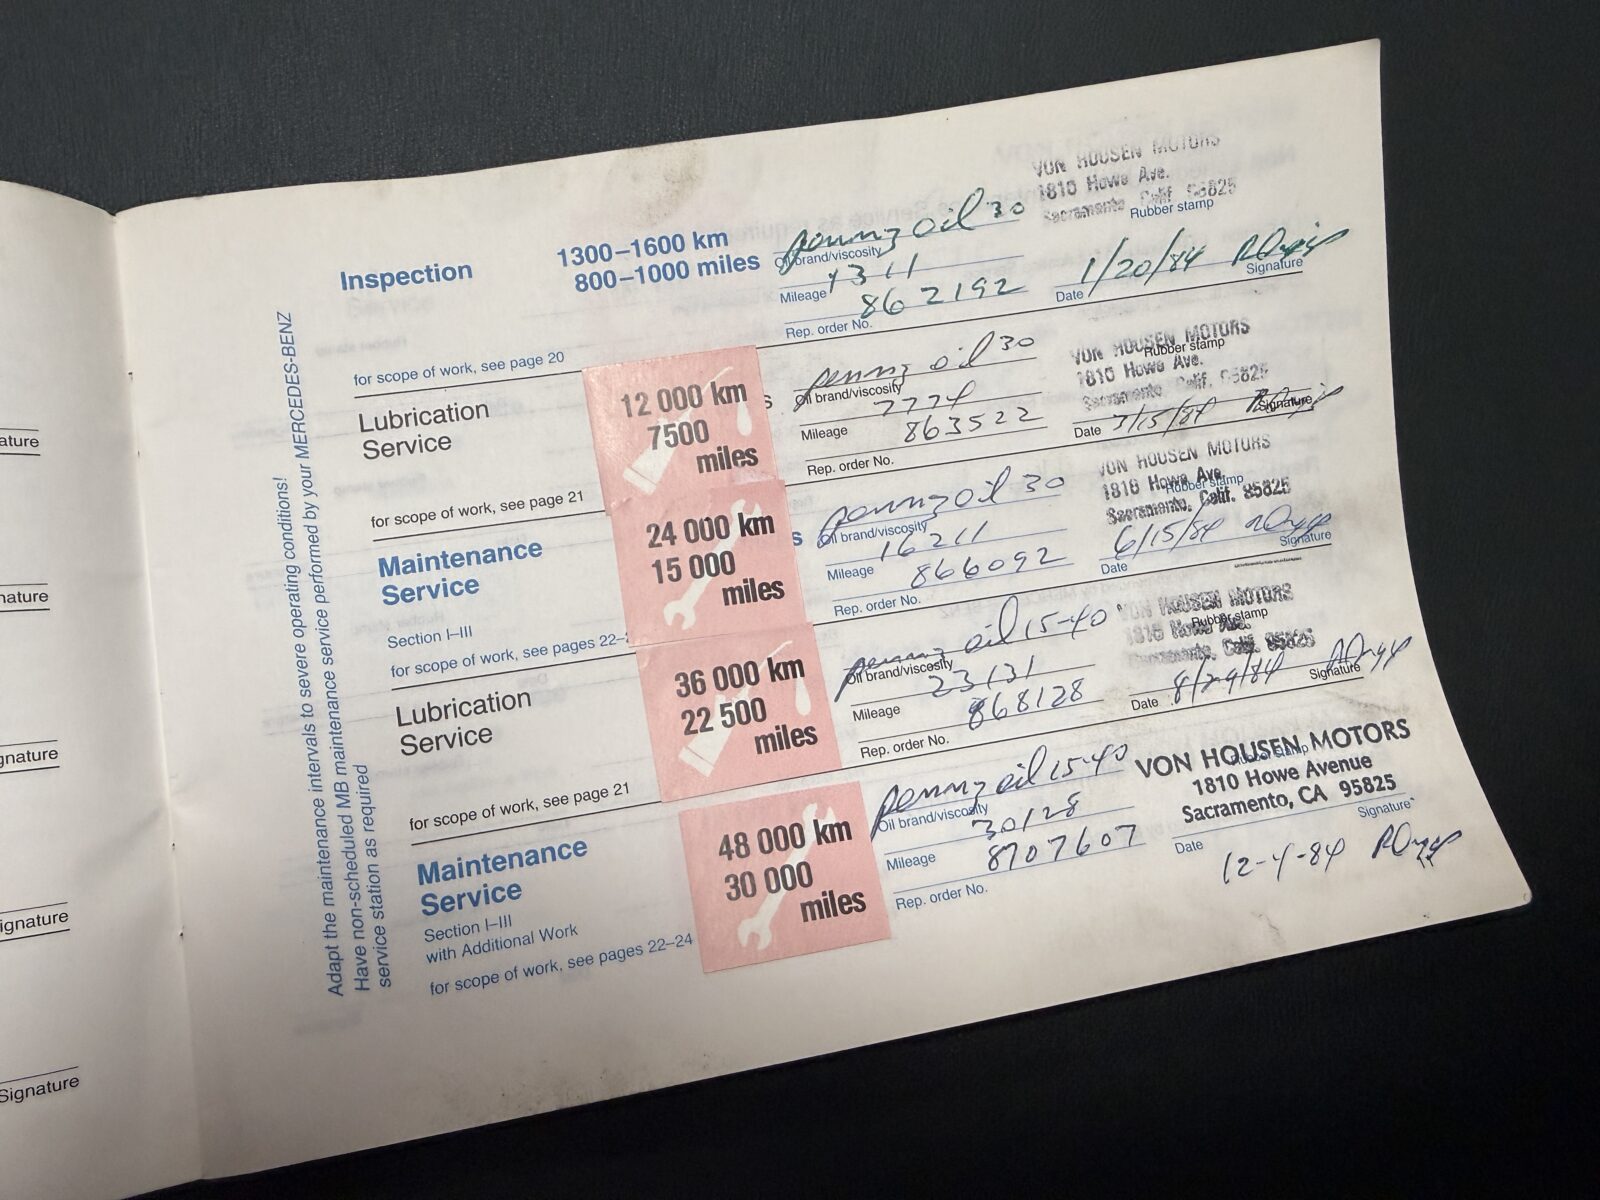 ature
nature
gnature
ignature
Signature
Adapt the maintenance intervals to severe operating conditions!
Have non-scheduled MB maintenance service performed by your MERCEDES-BENZ
service station as required
Inspection
1300–1600 km
800–1000 miles
for scope of work, see page 20
pennzoil 30
Oil brand/viscosity
1311
Mileage
862192
Rep. order No.
VON HOUSEN MOTORS
1810 Howe Ave.
Sacramento Calif 95825
Rubber stamp
1/20/84
Date
Signature
Lubrication
Service
for scope of work, see page 21
12 000 km
7500
miles
s
pennzoil 30
Oil brand/viscosity
Mileage
863522
Rep. order No.
VON HOUSEN MOTORS
Rubber stamp
1810 Howe Ave.
Sacramento Calif. 95825
Date
Signature
Maintenance
Service
Section I–III
for scope of work, see pages 22–2
24 000 km
15 000
miles
s
pennzoil 30
Oil brand/viscosity
16211
Mileage
866092
Rep. order No.
VON HOUSEN MOTORS
1810 Howe Ave.
Rubber stamp
Sacramento, Calif. 95825
6/15/84
Date
Signature
Lubrication
Service
for scope of work, see page 21
36 000 km
22 500
miles
pennzoil 15-40
Oil brand/viscosity
23131
Mileage
868128
Rep. order No.
VON HOUSEN MOTORS
Rubber stamp
1810 Howe Ave.
Sacramento, Calif. 95825
8/29/84
Date
Signature
Maintenance
Service
Section I–III
with Additional Work
for scope of work, see pages 22–24
48 000 km
30 000
miles
pennzoil 15-40
Oil brand/viscosity
30128
Mileage
8707607
Rep. order No.
VON HOUSEN MOTORS
Rubber stamp
1810 Howe Avenue
Sacramento, CA 95825
Signature
Date
12-4-84